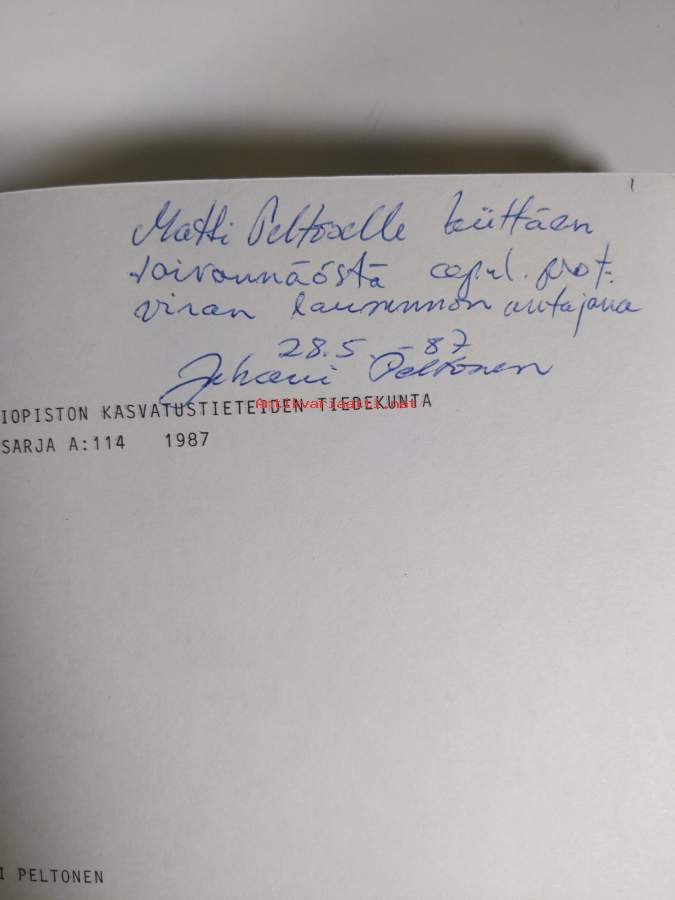 Matti Peltoselle kiittäen
vaivannäöstä apul. prof.
viran lausunnon antajana
28.5. -87
Juhani Peltonen
IOPISTON KASVATUSTIETEIDEN TIEDEKUNTA
Antikvariaatti.net
SARJA A:114 1987
I PELTONEN